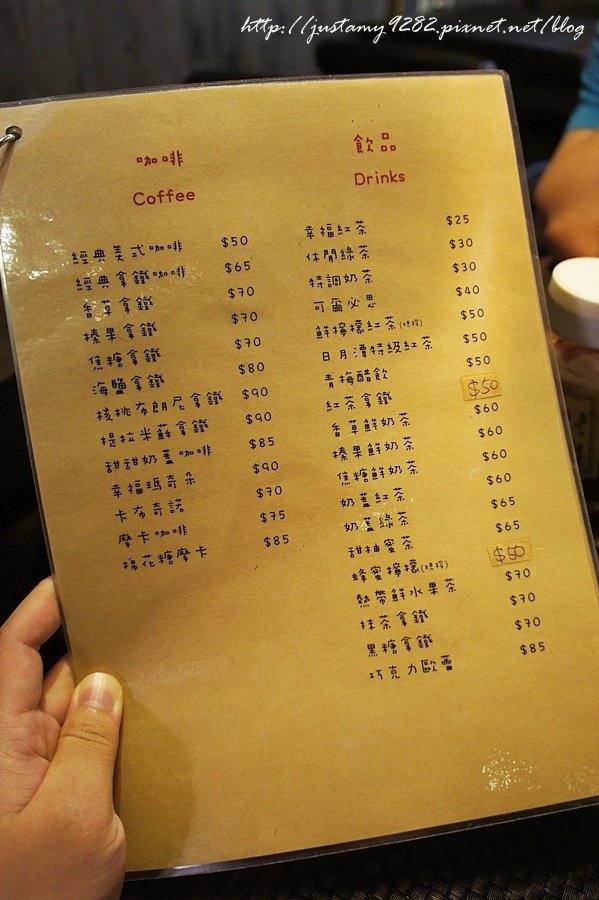 http://justamy9282.pixnet.net/blog
咖啡
Coffee
經典美式咖啡 $50
經典拿鐵咖啡 $65
香草拿鐵 $70
榛果拿鐵 $70
焦糖拿鐵 $70
海鹽拿鐵 $80
核桃布朗尼拿鐵 $90
提拉米蘇拿鐵 $90
甜甜奶蓋咖啡 $85
幸福瑪奇朵 $90
卡布奇諾 $70
摩卡咖啡 $75
棉花糖摩卡 $85
飲品
Drinks
幸福紅茶 $25
休閒綠茶 $30
特調奶茶 $30
可爾必思 $40
鮮檸檬紅茶(現榨) $50
日月潭特級紅茶 $50
青梅醋飲 $50
紅茶拿鐵 $50
香草鮮奶茶 $60
榛果鮮奶茶 $60
焦糖鮮奶茶 $60
奶蓋紅茶 $60
奶蓋綠茶 $65
甜柚蜜茶 $65
蜂蜜檸檬(現榨) $50
熱帶鮮水果茶 $70
抹茶拿鐵 $70
黑糖拿鐵 $70
巧克力歐蕾 $85